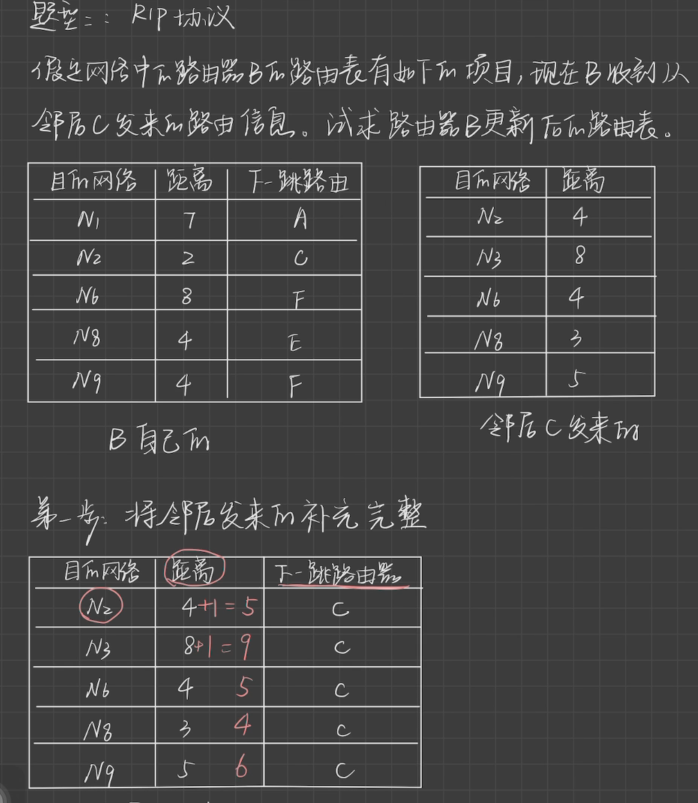 题型二: RIP协议
假定网络中的路由器B的路由表有如下的项目,现在B收到从
邻居C发来的路由信息。试求路由器B更新后的路由表。
目的网络 距离 下一跳路由
N1 7 A
N2 2 C
N6 8 F
N8 4 E
N9 4 F
B自己的
目的网络 距离
N2 4
N3 8
N6 4
N8 3
N9 5
邻居C发来的
第一步: 将邻居发来的补充完整
目的网络 距离 下一跳路由器
N2 4+1=5 C
N3 8+1=9 C
N6 4 5 C
N8 3 4 C
N9 5 6 C